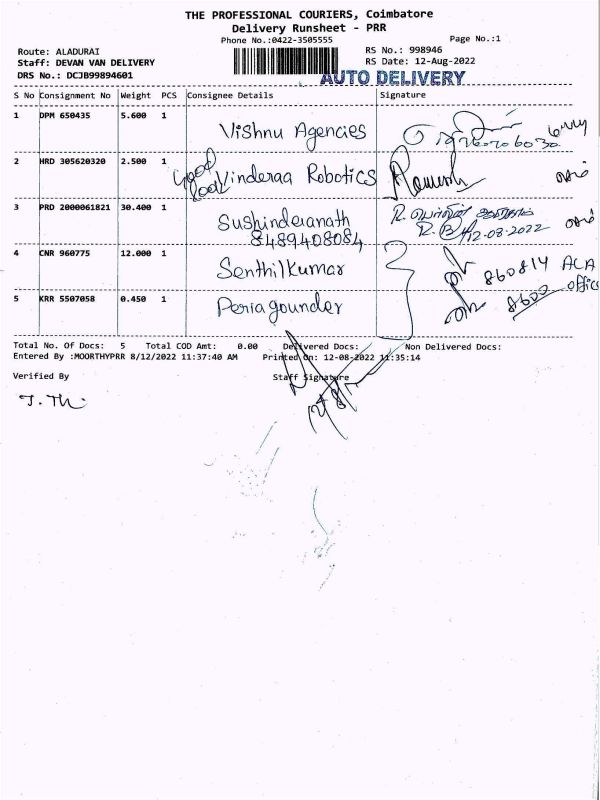 THE PROFESSIONAL COURIERS, Coimbatore
Delivery Runsheet - PRR
Phone No.:0422-3505555
Page No.:1
Route: ALADURAI
RS No.: 998946
Staff: DEVAN VAN DELIVERY
RS Date: 12-Aug-2022
DRS No.: DCJB99894601
AUTO DELIVERY
S No Consignment No Weight PCS Consignee Details Signature
1 DPM 650435 5.600 1 Vishnu Agencies
2 HRD 305620320 2.500 1 Vinderaa Robotics Ramesh
3 PRD 2000061821 30.400 1 Sushinderanath
8489408084 12-08-2022
4 CNR 960775 12.000 1 Senthilkumar 860814 ACA
5 KRR 5507058 0.450 1 Periagounder 8600 office
Total No. Of Docs: 5 Total COD Amt: 0.00 Delivered Docs: Non Delivered Docs:
Entered By :MOORTHYPRR 8/12/2022 11:37:40 AM Printed On: 12-08-2022 11:35:14
Verified By Staff Signature